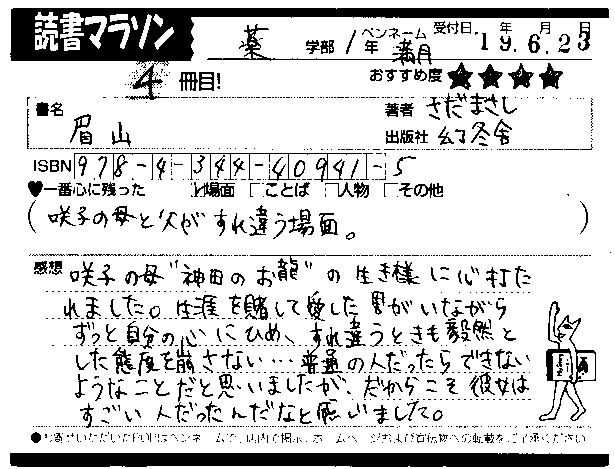 読書マラソン 薬 学部 1年 ペンネーム 満月 受付日 年 月 日 19.6.23
4 冊目! おすすめ度 ★★★★
書名 眉山 著者 さだまさし
出版社 幻冬舎
ISBN 978-4-344-40941-5
♥一番心に残った 場面 ことば 人物 その他
(咲子の母と父がすれ違う場面。)
感想 咲子の母“神田のお龍”の生き様に心打た
れました。生涯を賭して愛した男がいながら
ずっと自分の心にひめ、すれ違うときも毅然と
した態度を崩さない…普通の人だったらできない
ようなことだと思いましたが、だからこそ彼女は
すごい人だったんだなと感じました。
●お寄せいただいたPOPはペンネームで、店内で掲示、ホームページおよび宣伝物への転載をご了承ください